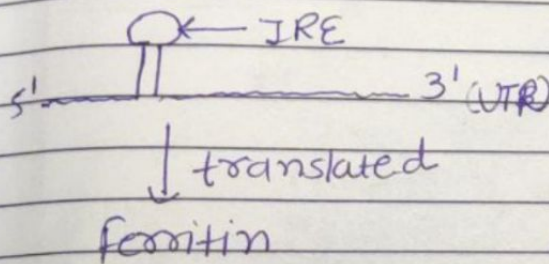 IRE
5' 3' (UTR)
translated
ferritin